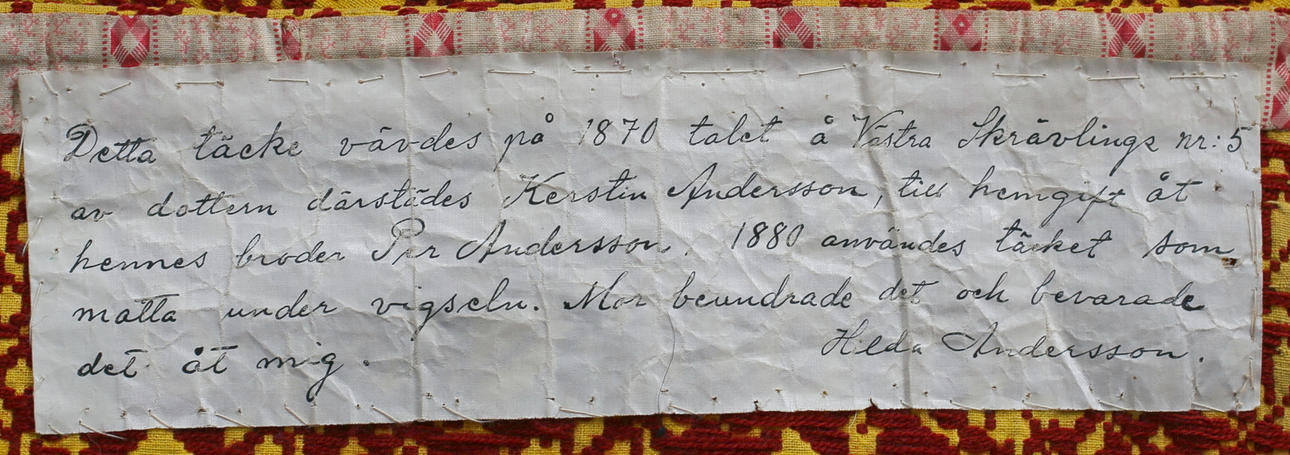 Detta täcke vävdes på 1870 talet å Västra Skrävlinge nr: 5
av dottern därstädes Kerstin Andersson, till hemgift åt
hennes broder Per Andersson. 1880 användes täcket som
matta under vigseln. Mor beundrade det och bevarade
det åt mig.
Hilda Andersson.